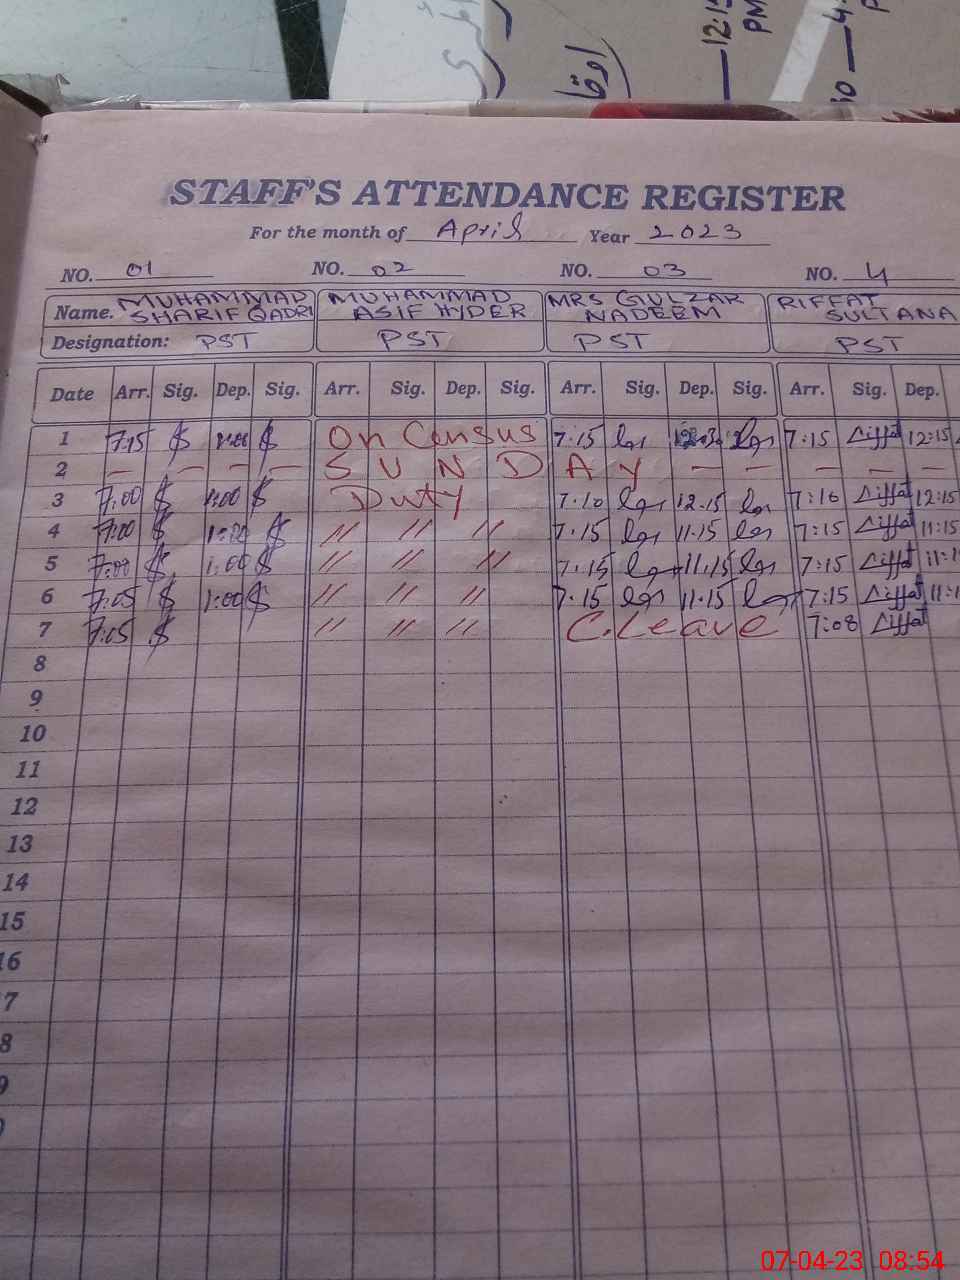 12:15
PM
اوقا
STAFF'S ATTENDANCE REGISTER
For the month of April Year 2023
NO. 01 NO. 02 NO. 03 NO. 4
Name. MUHAMMAD SHARIF QADRI MUHAMMAD ASIF HYDER MRS GULZAR NADEEM RIFFAT SULTANA
Designation: PST PST PST PST
Date Arr. Sig. Dep. Sig. Arr. Sig. Dep. Sig. Arr. Sig. Dep. Sig. Arr. Sig. Dep.
1 7:15 On Census 7.15 7:15 12:15
2 — — — — S U N D A Y — — — — —
3 7:00 1:00 Duty 7.10 12.15 7:10 12:15
4 7:00 1:00 // // // 7.15 11.15 7:15 11:15
5 7:00 1:00 // // // 7.15 11.15 7:15
6 7:05 1:00 // // // 7.15 11.15 7:15
7 7:05 // // // C. Leave 7:08
8
9
10
11
12
13
14
15
16
07-04-23 08:54